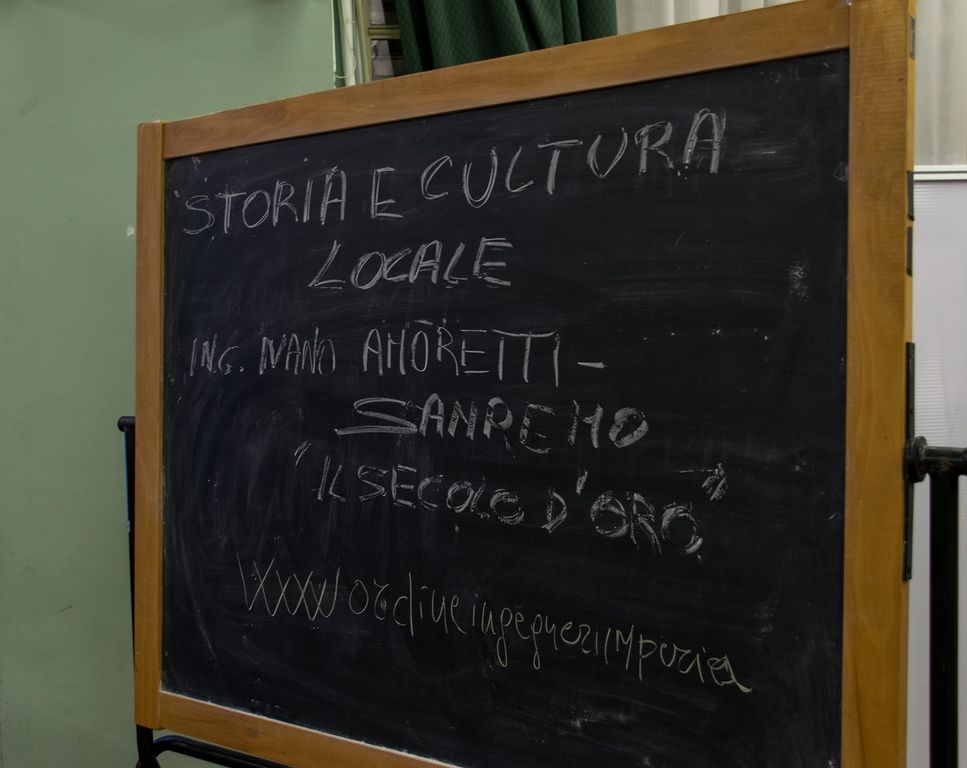 STORIA E CULTURA
LOCALE
ING. IVANO AMORETTI -
SANREMO
"IL SECOLO D'ORO"
ordineingegneriImperia